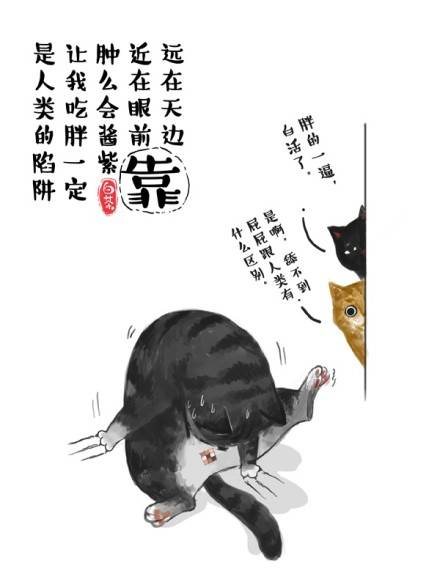 远在天边
近在眼前
肿么会酱紫
让我吃胖一定
是人类的陷阱
靠
白茶
胖的一逼，
白活了。
是啊，舔不到
屁屁跟人类有
什么区别。